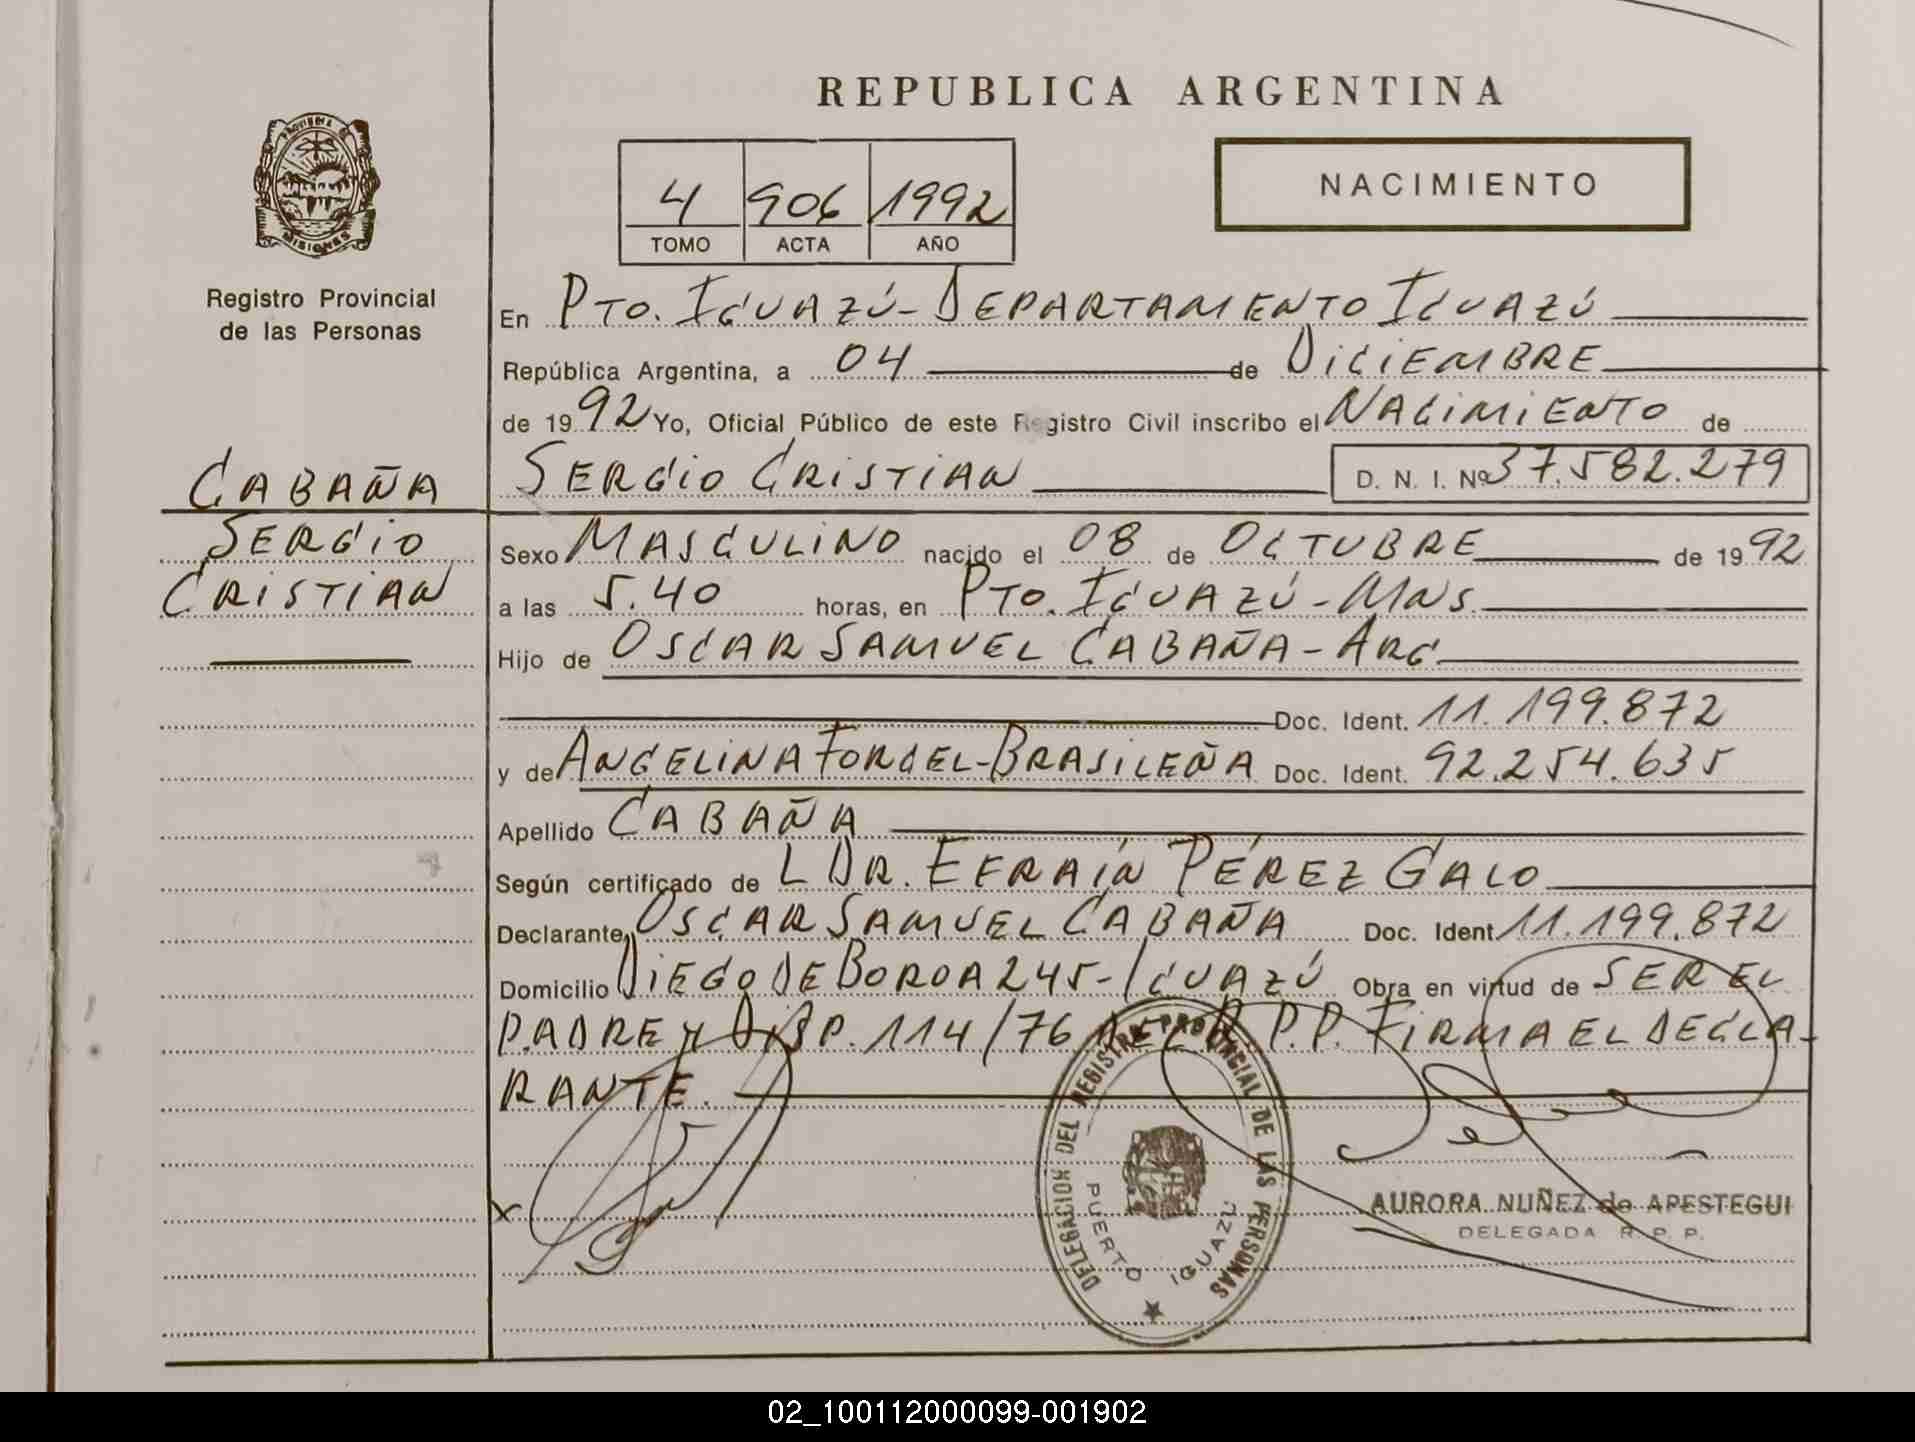 REPUBLICA ARGENTINA
PROVINCIA DE
MISIONES
Registro Provincial
de las Personas
4 906 1992
TOMO ACTA AÑO
NACIMIENTO
En PTO. IGUAZÚ - DEPARTAMENTO IGUAZÚ
República Argentina, a 04 de DICIEMBRE
de 1992 Yo, Oficial Público de este Registro Civil inscribo el NACIMIENTO de
CABAÑA
SERGIO
CRISTIAN
SERGIO CRISTIAN D. N. I. Nº 37.582.279
Sexo MASCULINO nacido el 08 de OCTUBRE de 1992
a las 5.40 horas, en PTO. IGUAZÚ - MNS.
Hijo de OSCAR SAMUEL CABAÑA - ARG
Doc. Ident. 11.199.872
y de ANGELINA FORGEL - BRASILEÑA Doc. Ident. 92.254.635
Apellido CABAÑA
Según certificado de L DR. EFRAÍN PÉREZ GALO
Declarante OSCAR SAMUEL CABAÑA Doc. Ident 11.199.872
Domicilio DIEGO DE BOROA 245 - IGUAZÚ Obra en virtud de SER EL
PADRE Y DISP. 114/76 DEL R.P.P. FIRMA EL DECLA-
RANTE.
DELEGACION DEL REGISTRO PROVINCIAL DE LAS PERSONAS
PUERTO IGUAZU
AURORA NUÑEZ de APESTEGUI
DELEGADA R. P. P.
02_100112000099-001902